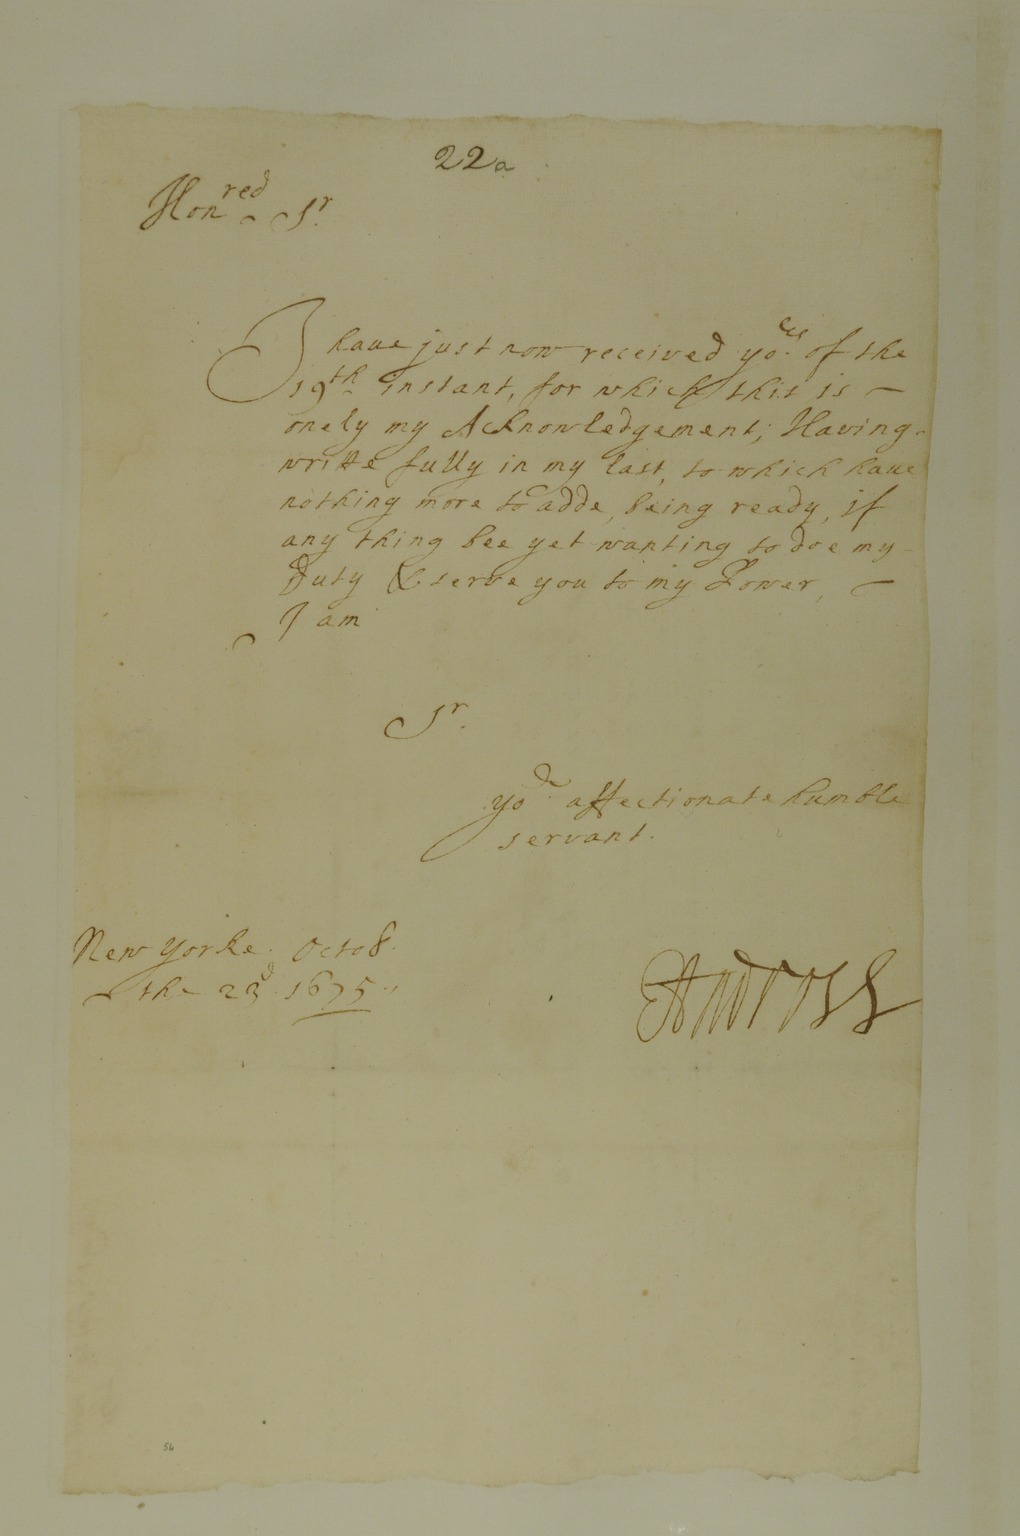 22a
Honred Sr.
I haue just now received yors. of the
19th instant, for which this is
onely my Acknowledgement; Having
writte fully in my last, to which haue
nothing more to adde, being ready, if
any thing bee yet wanting to doe my
Duty & serve you to my Power,
I am
Sr.
yor. affectionate humble
servant.
New Yorke. Octob.
the 23d. 1675.
EAndross
56